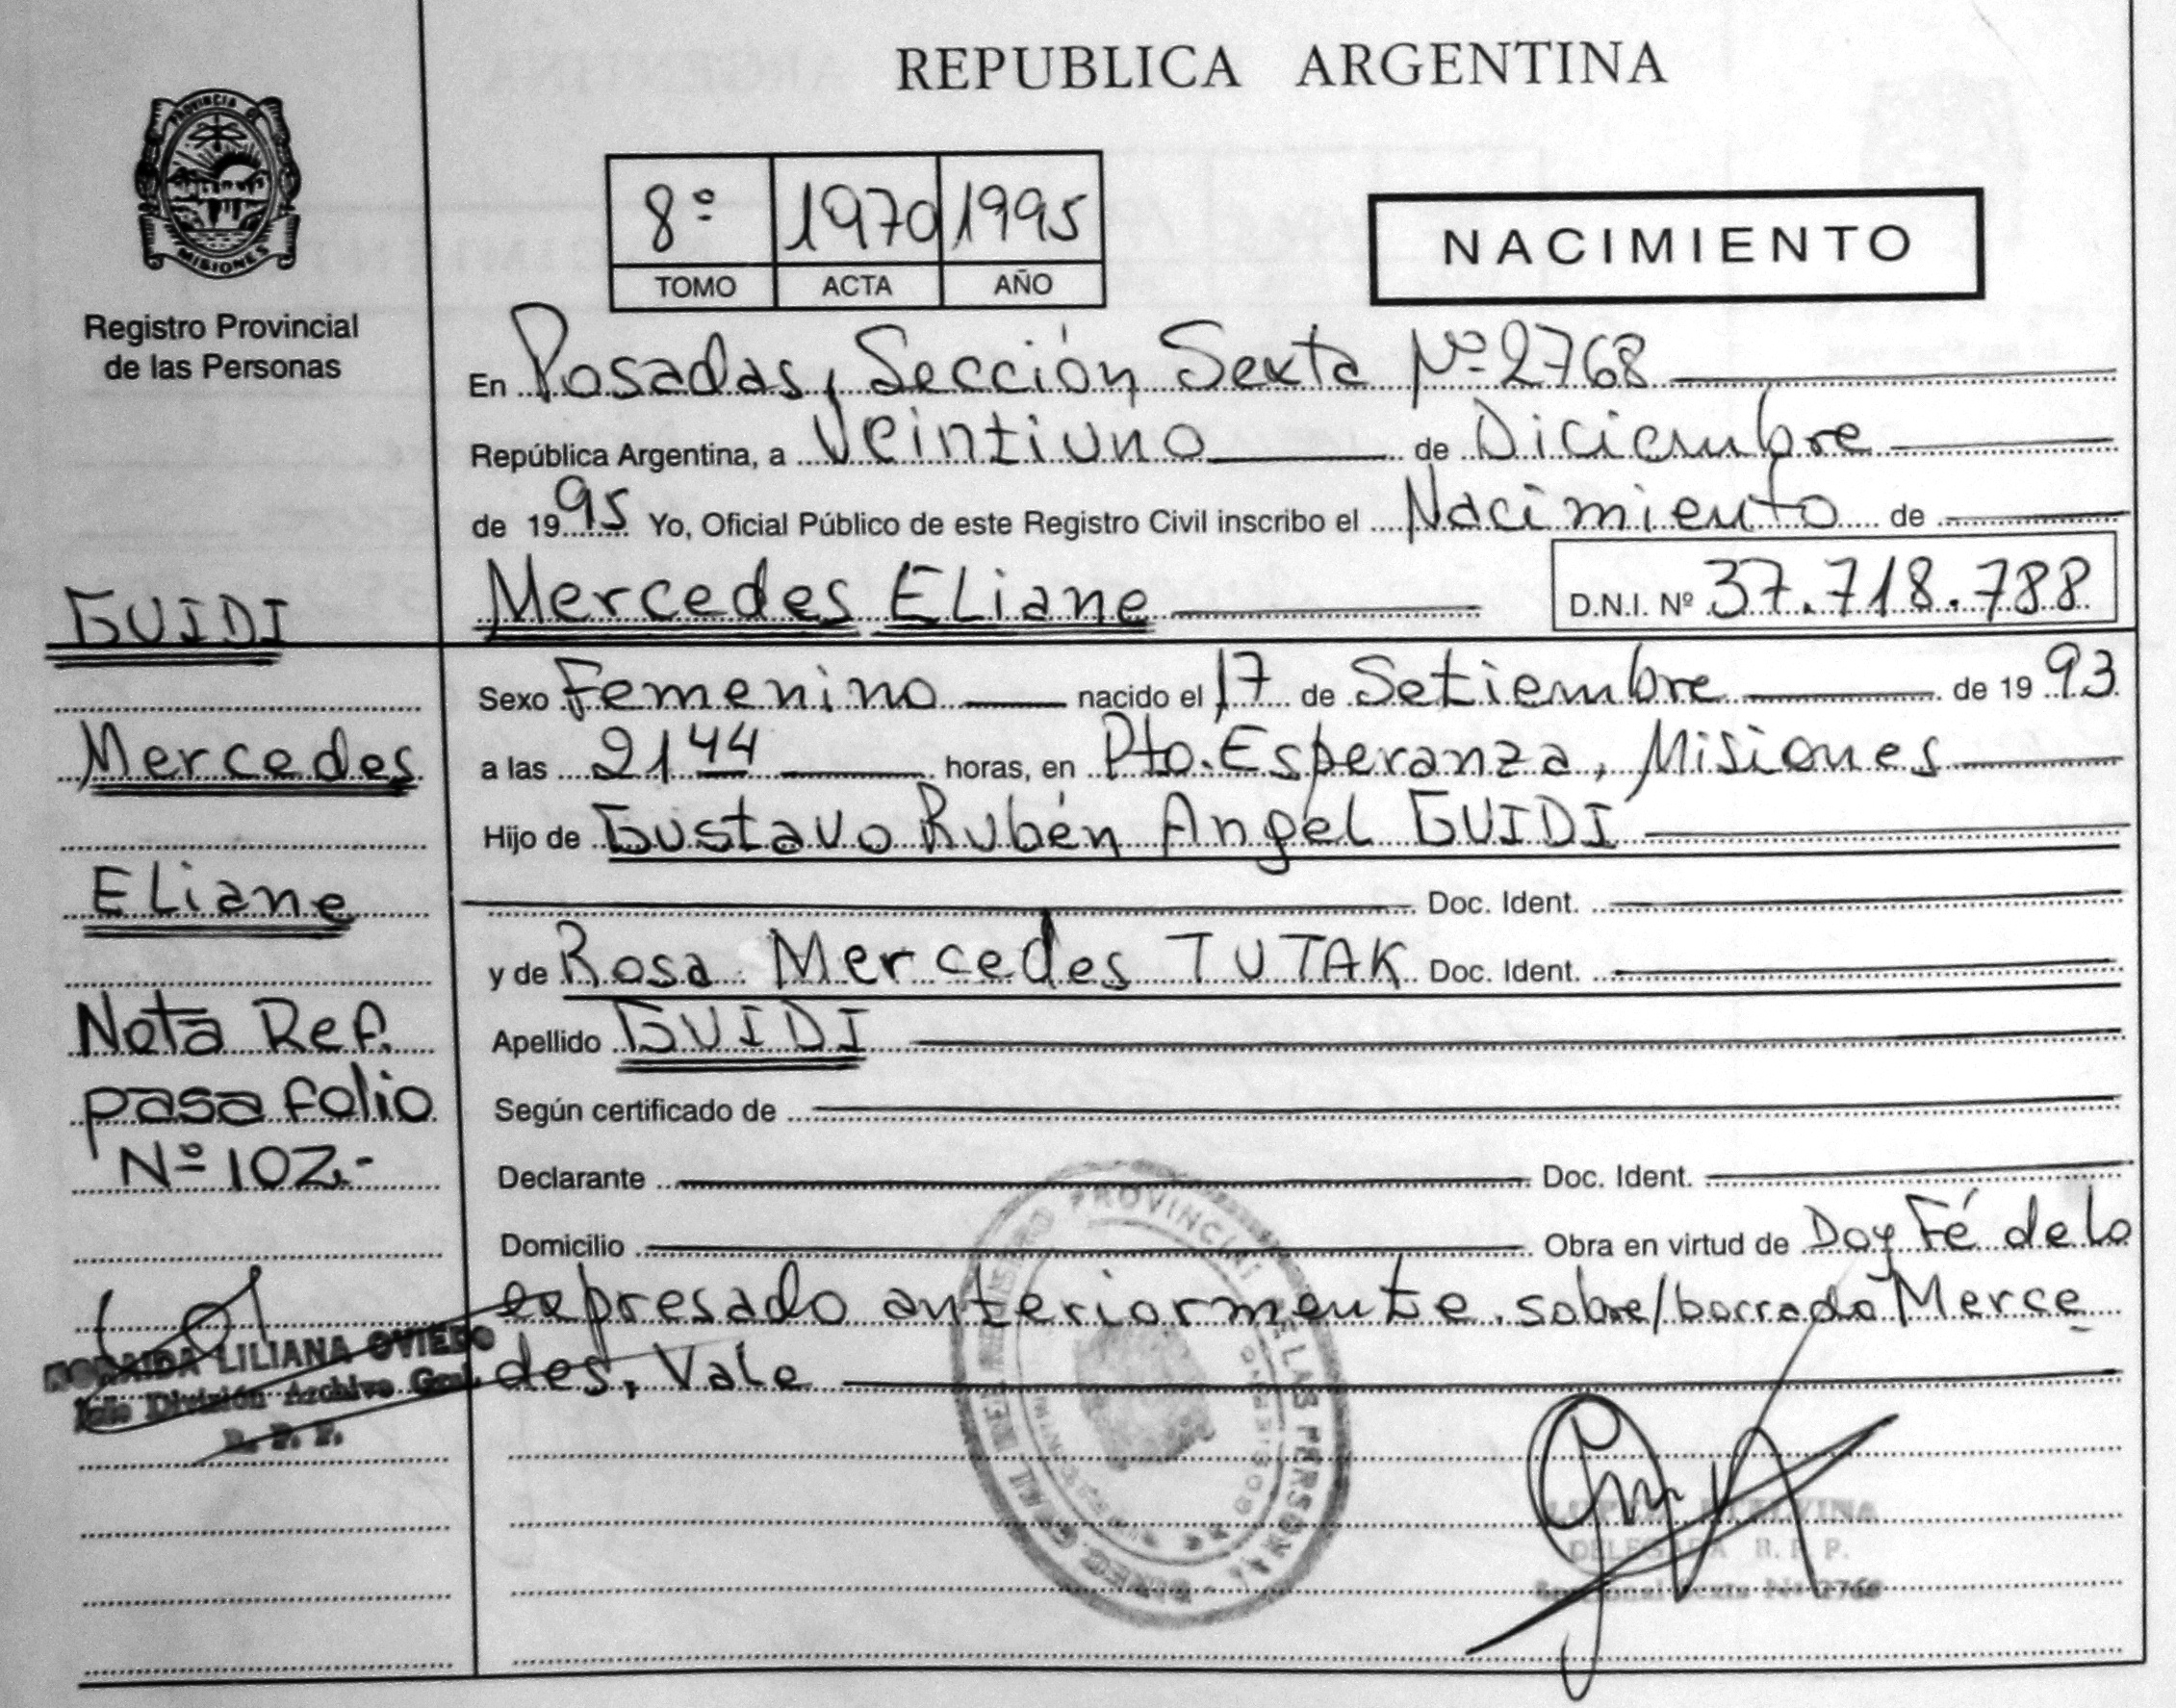 REPUBLICA ARGENTINA
PROVINCIA DE
MISIONES
Registro Provincial
de las Personas
8º 1970 1995
TOMO ACTA AÑO
NACIMIENTO
En Posadas, Sección Sexta Nº 2768
República Argentina, a Veintiuno de Diciembre
de 1995 Yo, Oficial Público de este Registro Civil inscribo el Nacimiento de
Mercedes ELiane D.N.I. Nº 37.718.788
Sexo Femenino nacido el 17 de Setiembre de 1993
a las 21 44 horas, en Pto. Esperanza, Misiones
Hijo de Gustavo Rubén Angel GUIDI
Doc. Ident.
y de Rosa Mercedes TUTAK Doc. Ident.
Apellido GUIDI
Según certificado de
Declarante Doc. Ident.
Domicilio Obra en virtud de Doy Fé de lo
expresado anteriormente. sobre/borrado Merce
des, Vale
GUIDI
Mercedes
ELiane
Nota Ref.
pasa folio
Nº 102.-
LILIANA OVIEDO
Jefe División Archivo Gral.
R. P. P.
REGISTRO PROVINCIAL DE LAS PERSONAS
DELEGADA R. P. P.
Seccional Sexta Nº 2768